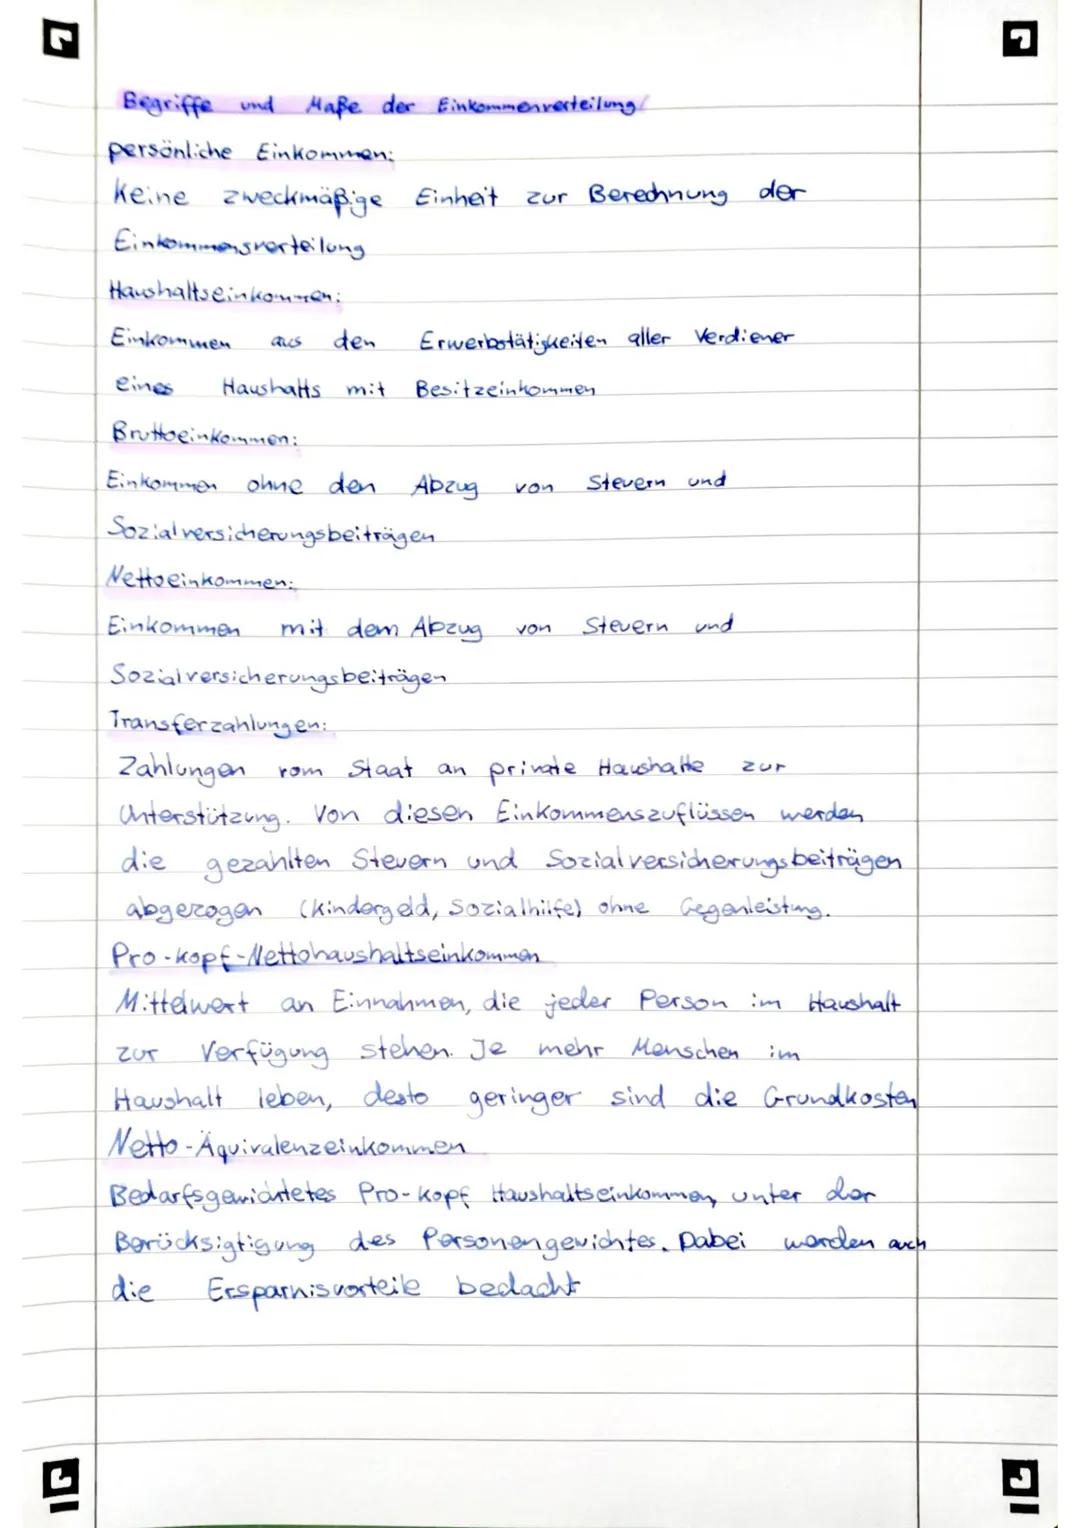 Begriffe und Maße der Einkommenverteilung
persönliche Einkommen:
Keine zweckmäßige Einheit zur Berechnung der
Einkommensverteilung
Haushaltseinkommen:
Einkommen aus den Erwerbstätigkeiten aller Verdiener
eines Haushalts mit Besitzeinkommen
Bruttoeinkommen:
Einkommen ohne den Abzug von Steuern und
Sozialversicherungsbeiträgen
Nettoeinkommen:
Einkommen mit dem Abzug von Steuern und
Sozialversicherungsbeiträgen
Transferzahlungen:
Zahlungen vom Staat an private Haushalte zur
Unterstützung. Von diesen Einkommenszuflüssen werden
die gezahlten Steuern und Sozialversicherungsbeiträgen
abgezogen (Kindergeld, Sozialhilfe) ohne Gegenleistung.
Pro-Kopf-Nettohaushaltseinkommen
Mittelwert an Einnahmen, die jeder Person im Haushalt
zur Verfügung stehen. Je mehr Menschen im
Haushalt leben, desto geringer sind die Grundkosten
Netto-Äquivalenzeinkommen
Bedarfsgewichtetes Pro-Kopf Haushaltseinkommen, unter der
Berücksigtigung des Personengewichtes. Dabei werden auch
die Ersparnisvorteile bedacht